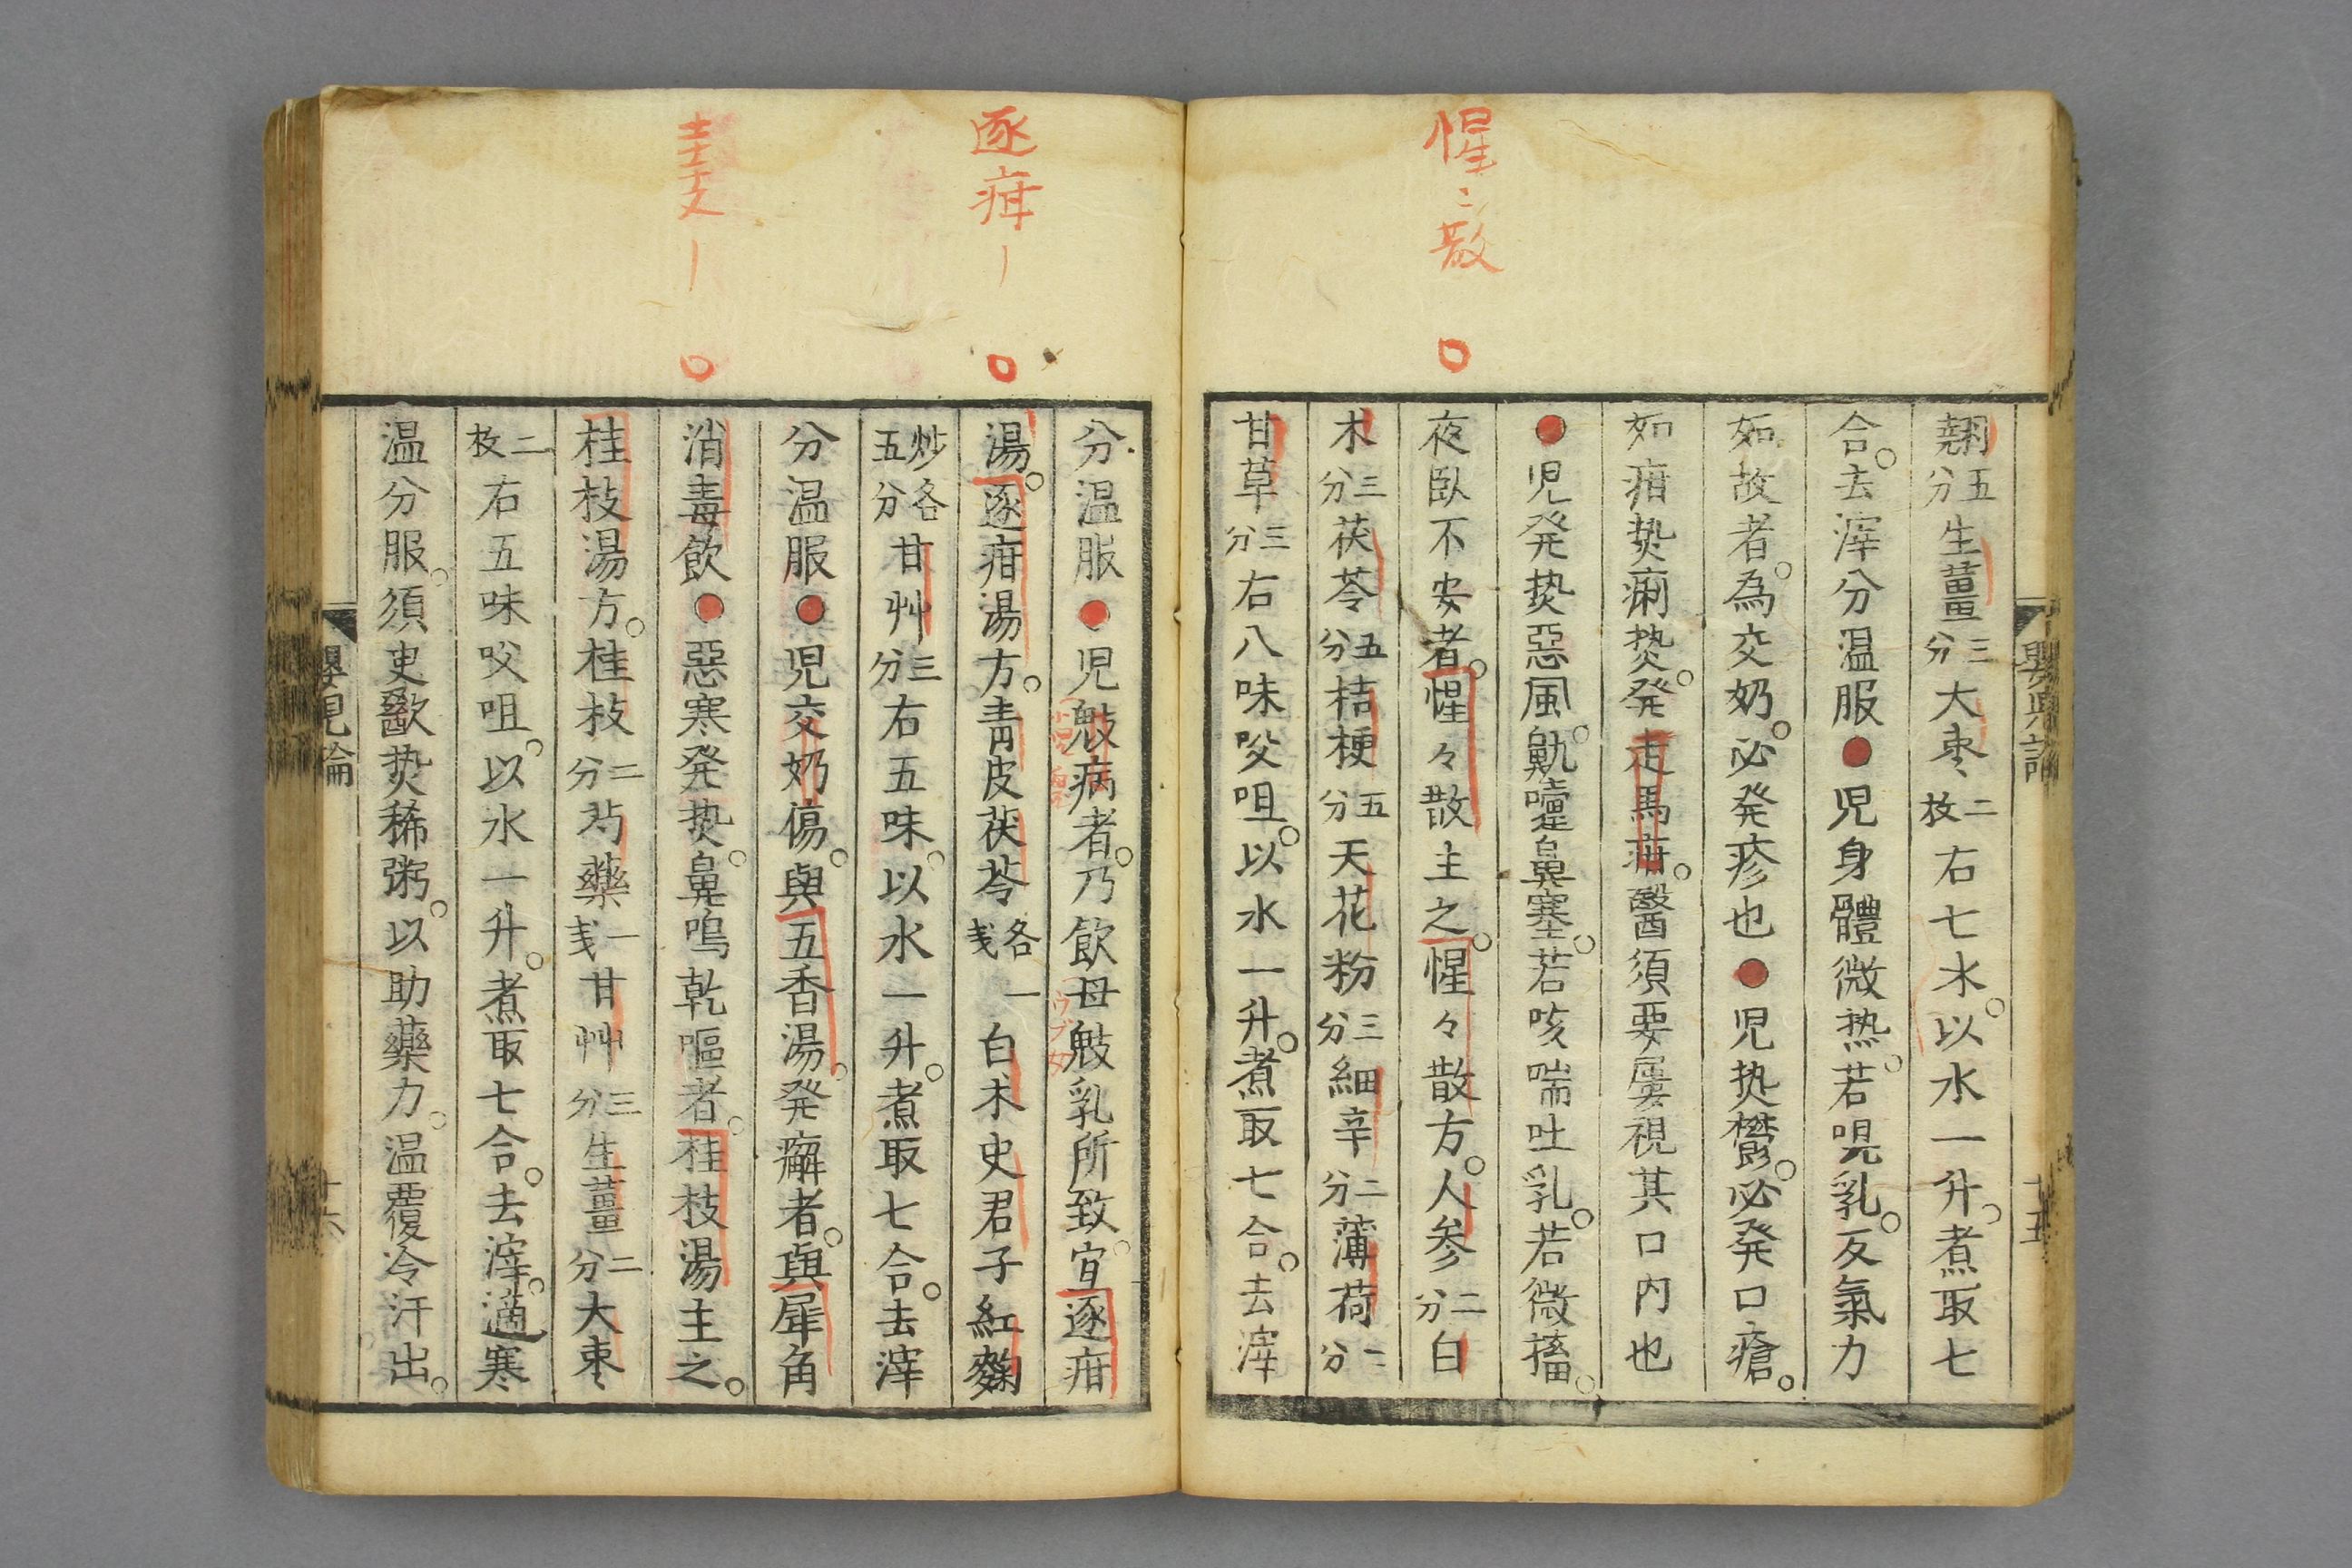 惺〻散
翹五分生薑三分大棗二枚右七水以水一升煮取七
合去滓分温服●児身體微热若哯乳反氣力
如故者為交奶必発疹也●児热欝必発口瘡
如疳热痢热発走馬疳醫須要屡視其口内也
●児発热惡風鼽嚏鼻塞若咳喘吐乳若微搐
夜臥不安者惺々散主之惺々散方人参二分白
术三分茯苓五分桔梗五分天花粉三分細辛二分薄荷二分
甘草三分右八味㕮咀以水一升煮取七合去滓
嬰児論
十五
逐疳丨
圭支丨
分温服●児鬾病者乃飲母鬾乳所致宜逐疳
湯逐疳湯方青皮茯苓各一戋白术史君子紅麴
炒各五分甘艸三分右五味以水一升煮取七合去滓
分温服●児交奶傷與五香湯発癬者與犀角
消毒飲●惡寒発热鼻鳴乾嘔者桂枝湯主之
桂枝湯方桂枝二分芍藥一戋甘艸三分生薑二分大棗
二枚右五味㕮咀以水一升煮取七合去滓適寒
温分服須史歠热稀粥以助藥力温覆冷汗出
嬰児論
十六